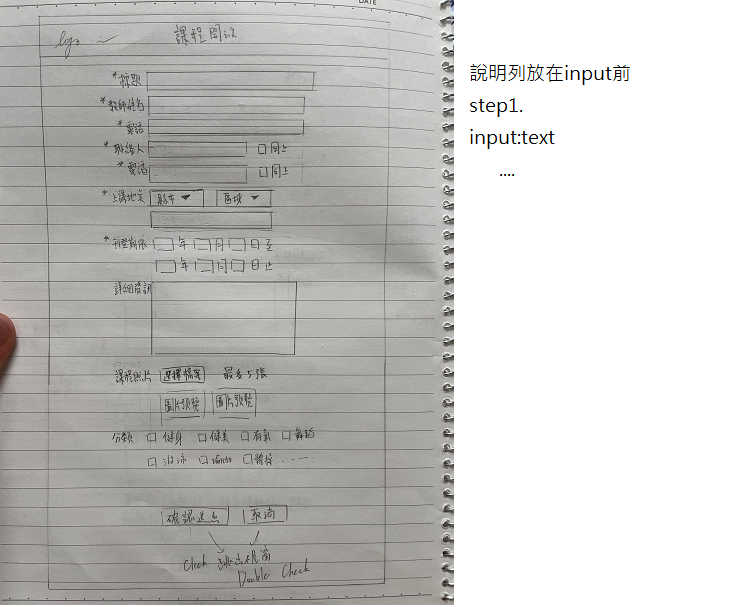 DATE
logo 課程開設
*標題
*教師姓名
*電話
*聯絡人 同上
*電話 同上
*上課地點 縣市 區域
*刊登期限 年 月 日 至
年 月 日 止
詳細資訊
課程照片 選擇檔案 最多5張
圖片預覽 圖片預覽
分類 健身 健美 有氧 舞蹈
游泳 體操 ....
確認送出 取消
Click 跳出視窗
Double Check
說明列放在input前
step1.
input:text
....